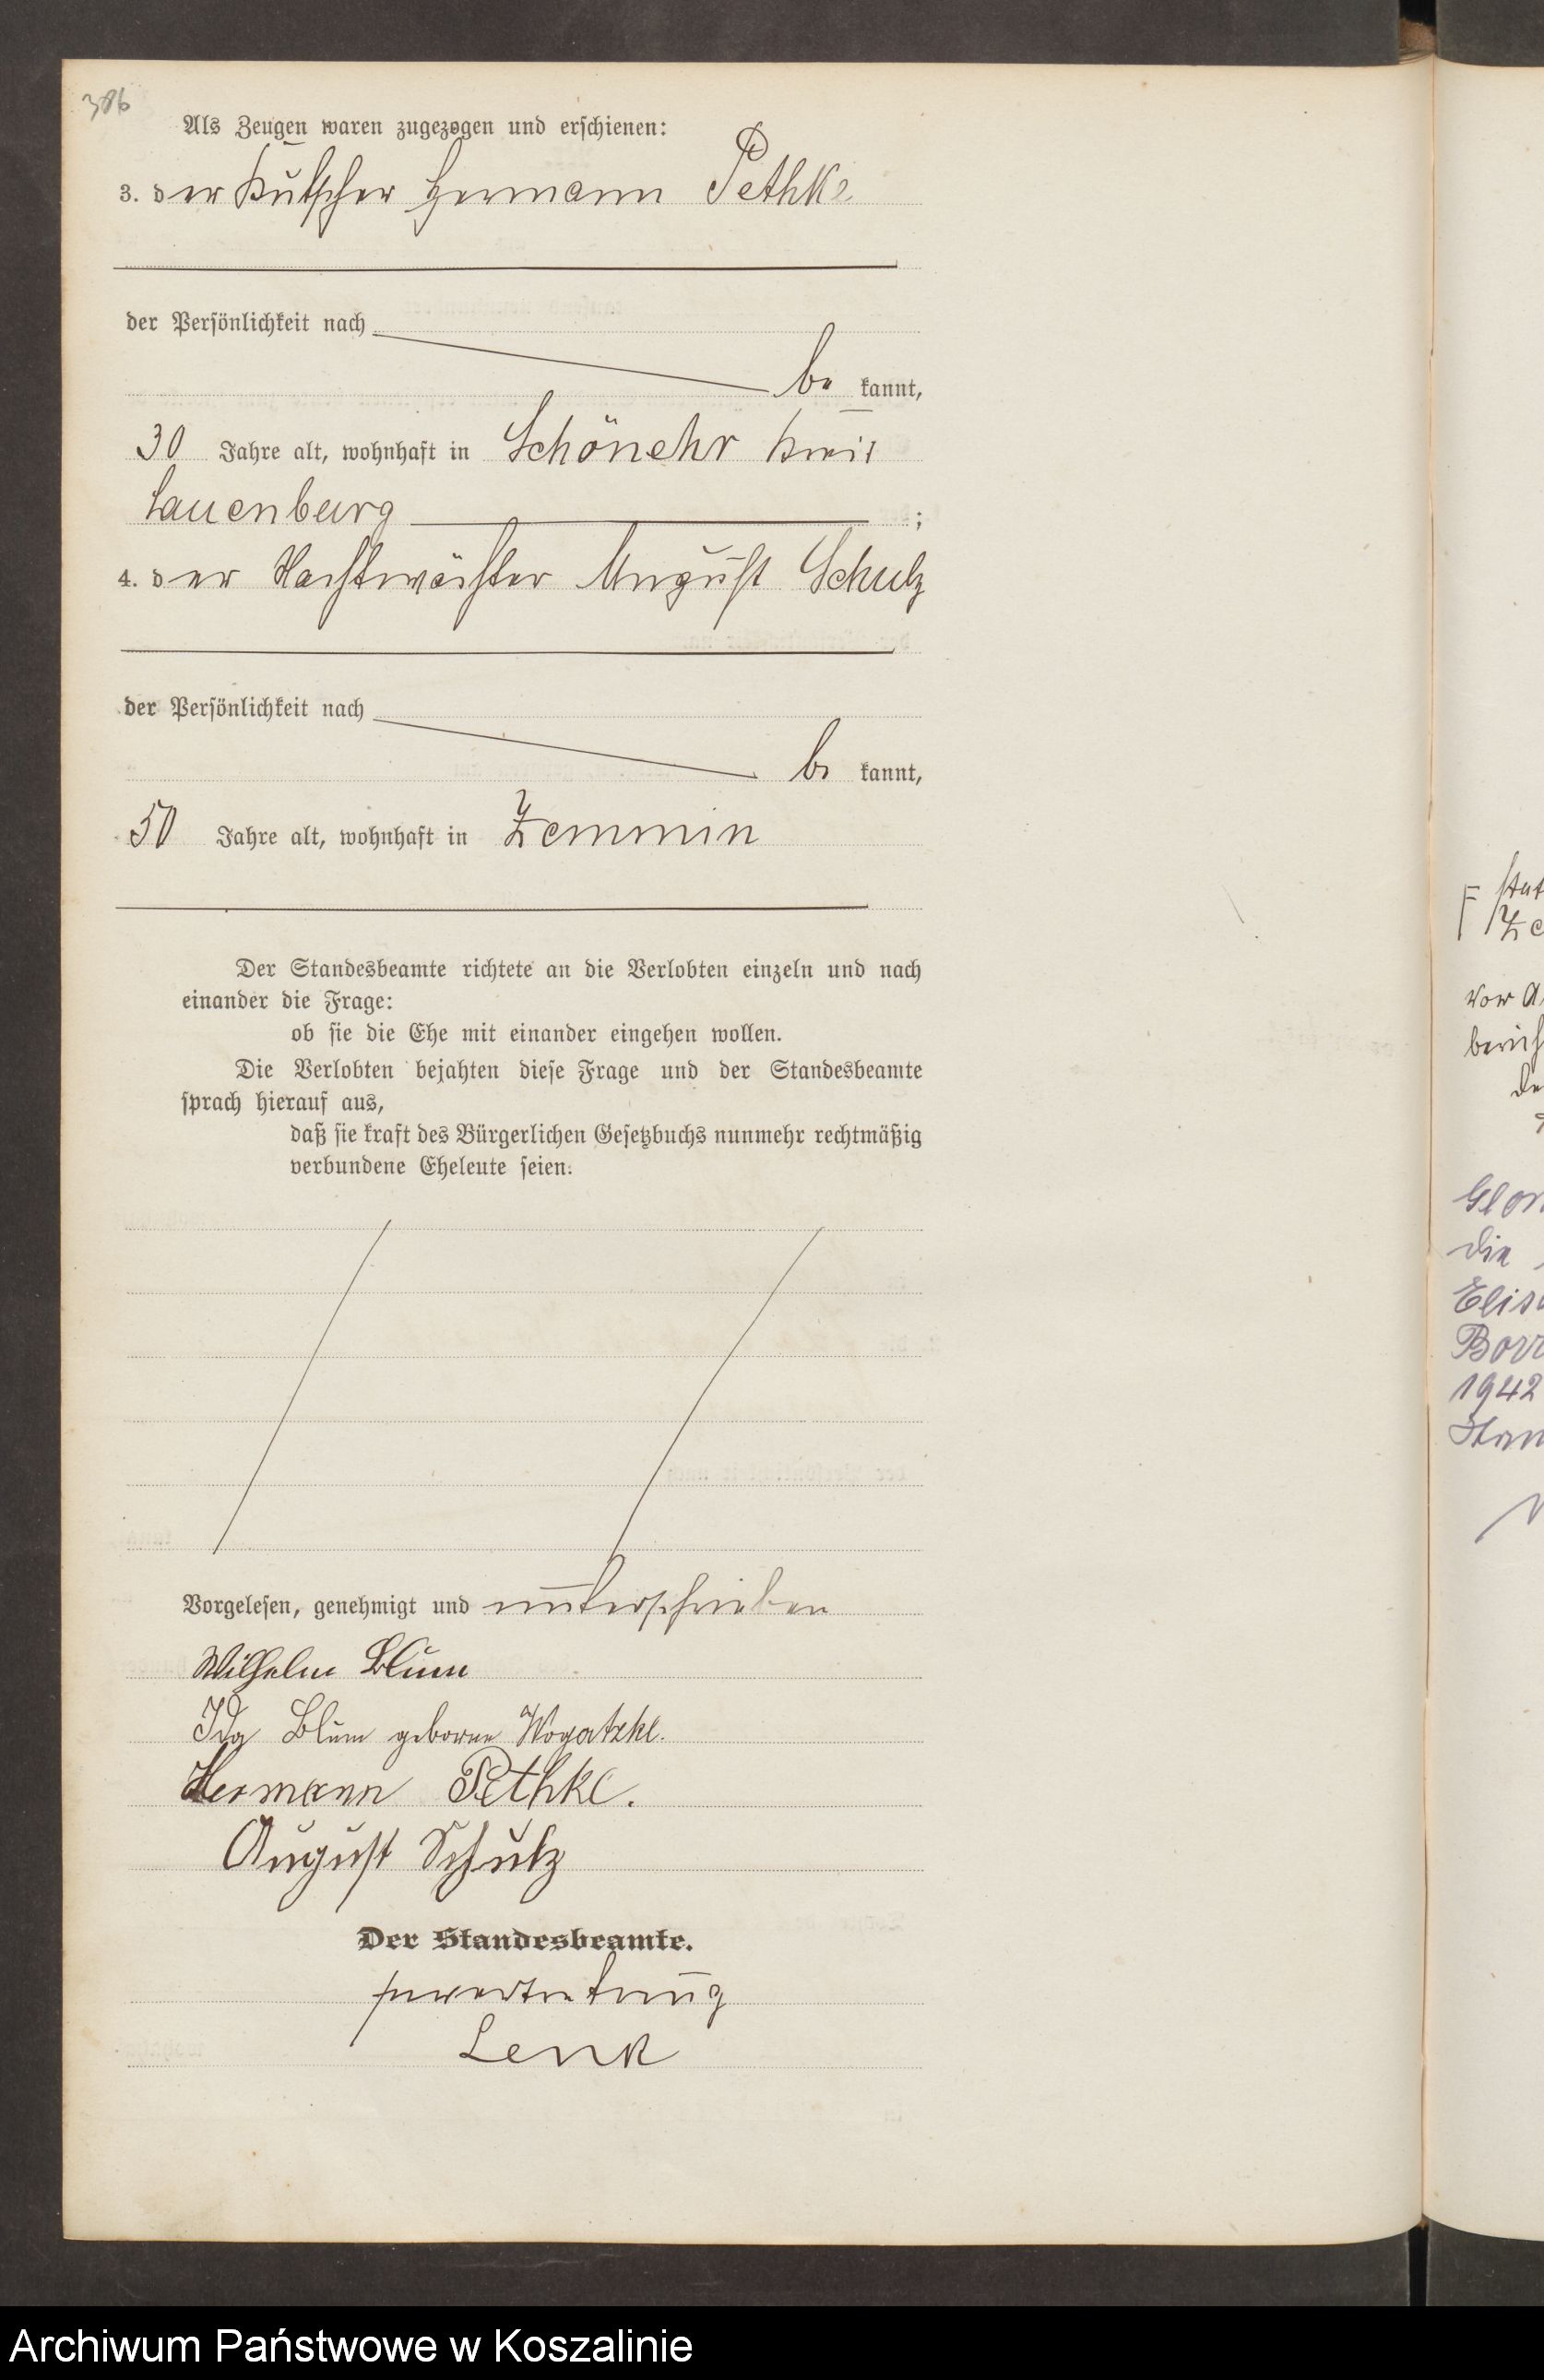 386
Als Zeugen waren zugezogen und erschienen:
3. der Kutscher Hermann Pethke
der Persönlichkeit nach
be kannt,
30 Jahre alt, wohnhaft in Schönehr Kreis
Lauenburg ;
4. der Nachtwächter August Schulz
der Persönlichkeit nach
be kannt,
50 Jahre alt, wohnhaft in Zemmin
Der Standesbeamte richtete an die Verlobten einzeln und nach
einander die Frage:
ob sie die Ehe mit einander eingehen wollen.
Die Verlobten bejahten diese Frage und der Standesbeamte
sprach hierauf aus,
daß sie kraft des Bürgerlichen Gesetzbuchs nunmehr rechtmäßig
verbundene Eheleute seien.
Vorgelesen, genehmigt und unterschrieben
Wilhelm Blum
Ida Blum geborne Wogatzke.
Hermann Pethke.
August Schulz
Der Standesbeamte.
In Vertretung
Lenk
die
1942
Archiwum Państwowe w Koszalinie